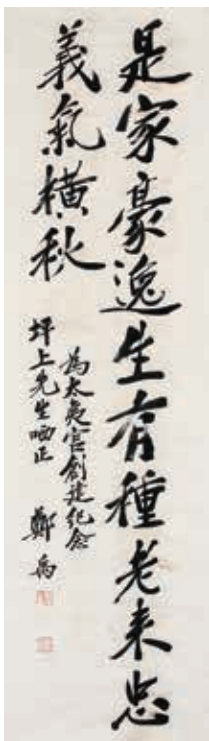 是家豪逸生有種老来忠
義氣橫秋
為太夷宮創建纪念
坪上先生哂正
鄭禹